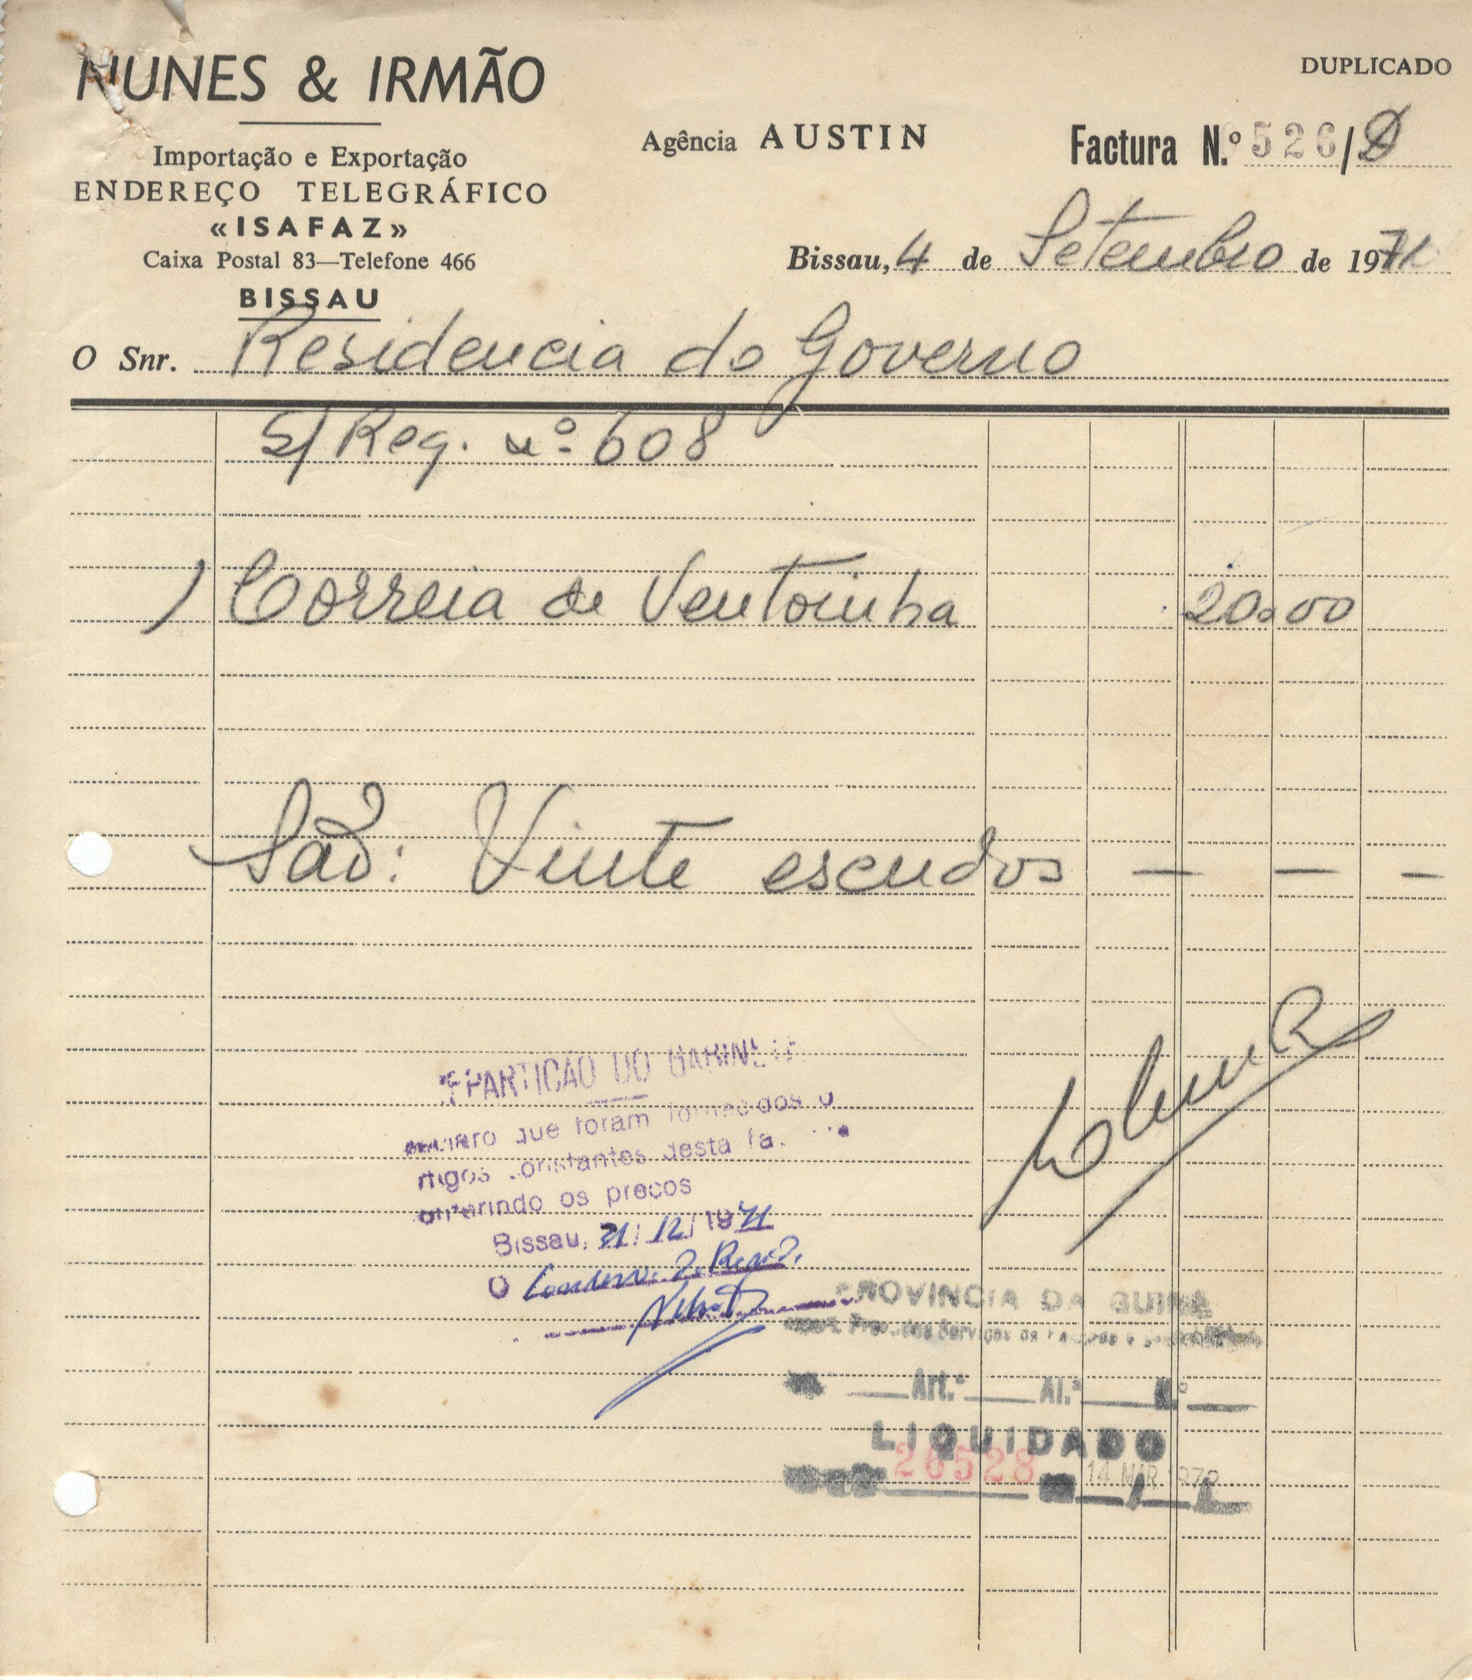 NUNES & IRMÃO
DUPLICADO
Importação e Exportação
ENDEREÇO TELEGRÁFICO
«ISAFAZ»
Caixa Postal 83—Telefone 466
BISSAU
Agência AUSTIN
Factura N.º 526/D
Bissau, 4 de Setembro de 1971
O Snr. Residencia do Governo
S/ Req. nº 608
1 Correia de Ventoinha 20.00
São: Vinte escudos — — —
EPARTIÇÃO DO GABINETE
que foram fornecidos o
rtigos constantes desta fa
os preços
Bissau, 31/12/1971
O
PROVINCIA DA GUINÉ
Art.º Al.ª N.º
LIQUIDADO
26528 14 MAR 1972